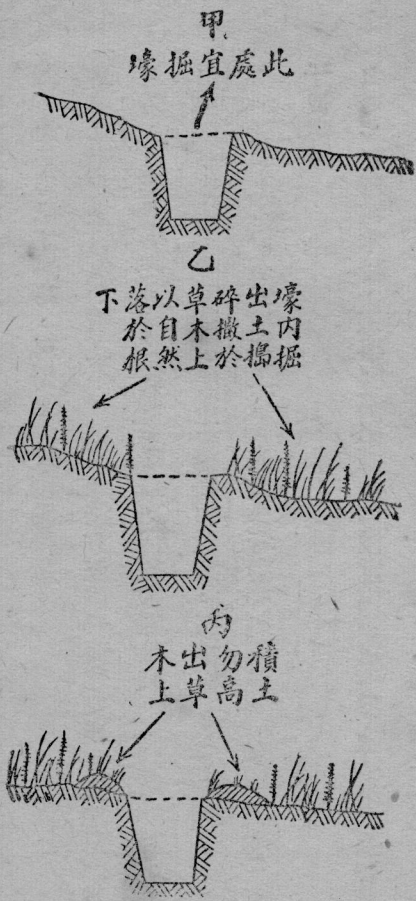 甲
此處宜掘壕
乙
壕內掘
出土搗
碎撒於
草木上
以自然
落於根
下
丙
積土
勿高
出草
木上